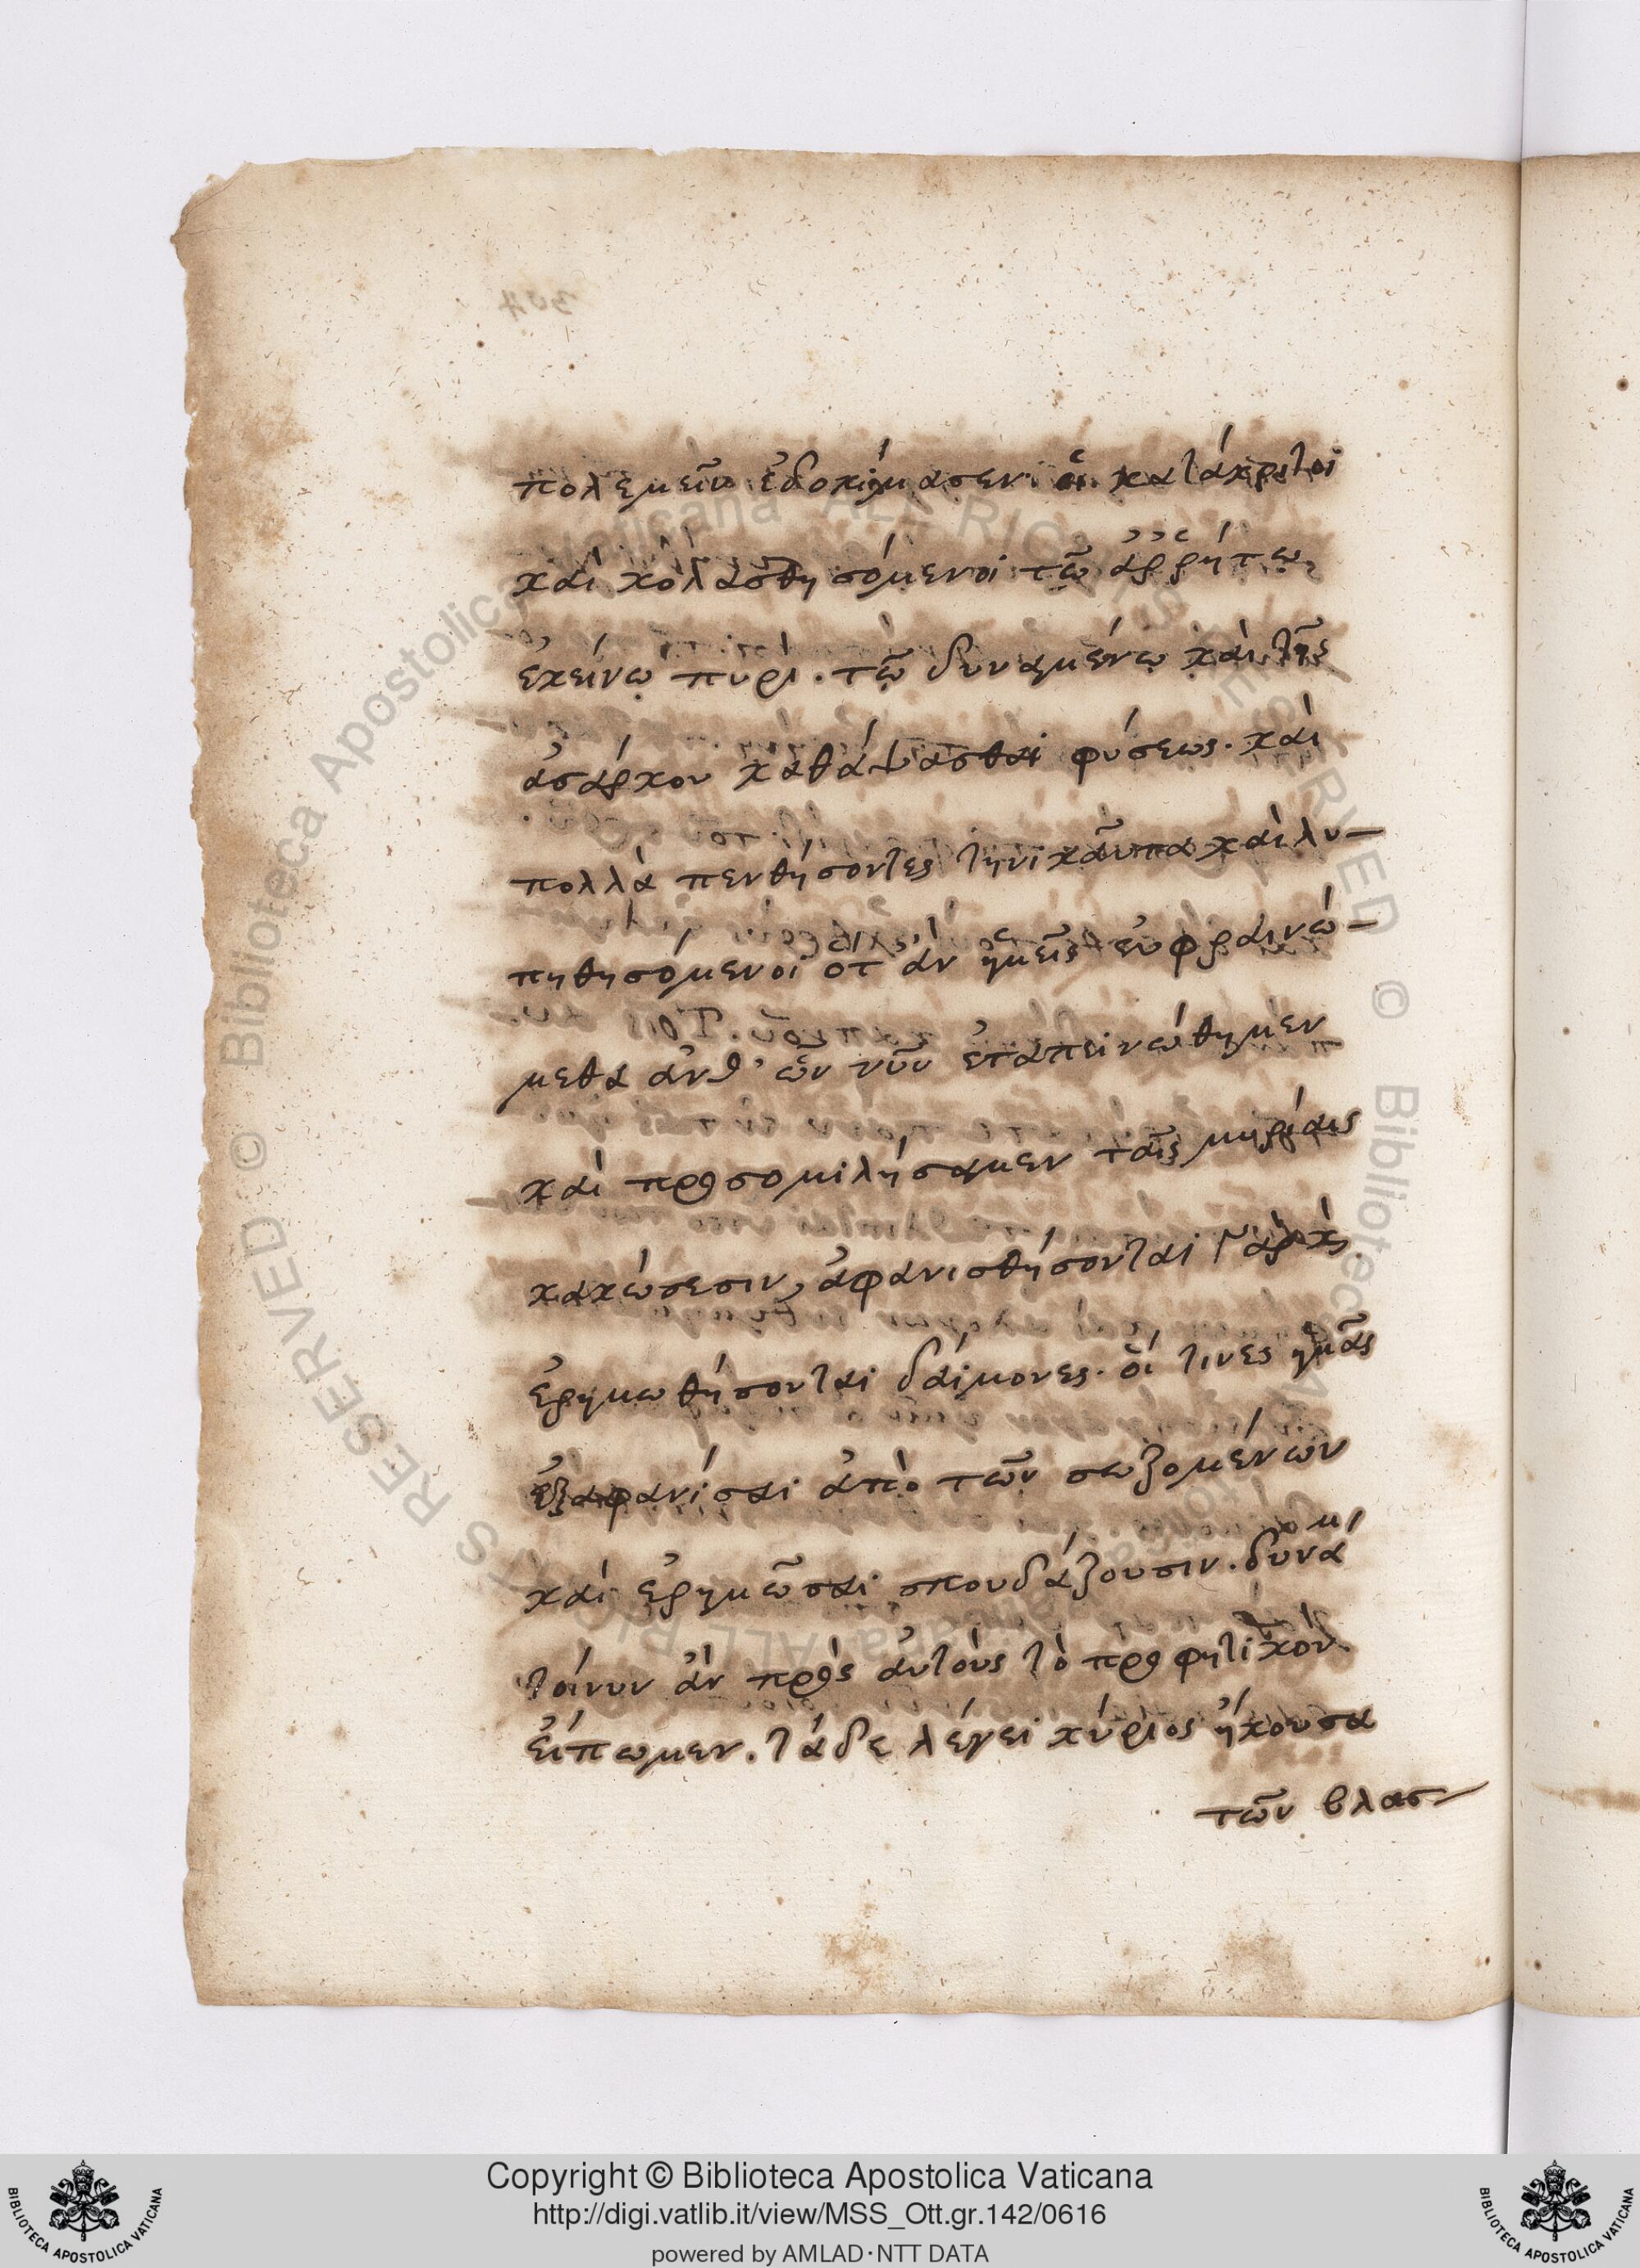 πολεμεῖν ἐδοκίμασεν· οἱ κατάκριτοι
καὶ κολασθησόμενοι τῷ ἀῤῥήτῳ
ἐκείνῳ πυρὶ. τῷ δυναμένῳ καὶ τῆς
ἀσάρκου καθάψασθαι φύσεως. καὶ
πολλὰ πενθήσοντες τηνικαῦτα καὶ λυ-
πηθησόμενοι ὅτ' ἂν ἡμεῖς εὐφραινώ-
μεθα ἀνθ' ὧν νῦν ἐταπεινώθημεν
καὶ προσομιλήσαμεν ταῖς μυρίαις
κακώσεσιν, ἀφανισθήσονται γὰρ καὶ
ἐρημωθήσονται δαίμονες. οἵ τινες ἡμᾶς
ἐξαφανίσαι ἀπὸ τῶν σωζομένων
καὶ ἐρημῶσαι σπουδάζουσιν.
τοίνυν ἂν πρὸς αὐτοὺς τὸ προφητικὸν
εἴπωμεν. τάδε λέγει κύριος ἤκουσα
τῶν βλασ-
Copyright © Biblioteca Apostolica Vaticana
http://digi.vatlib.it/view/MSS_Ott.gr.142/0616
powered by AMLAD·NTT DATA
BIBLIOTECA APOSTOLICA VATICANA
BIBLIOTECA APOSTOLICA VATICANA